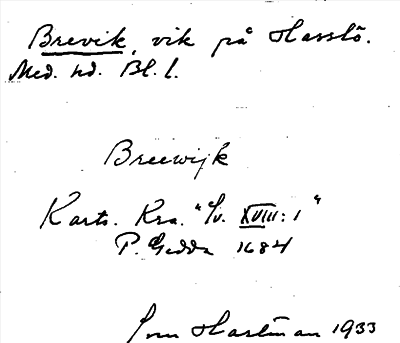 Brevik, vik på Hasslö.
Med. hd. Bl. l.
Breewijk
Kartv. Kra. "Sv. XVIII: 1"
P. Gedda 1684
Sven Hartman 1933